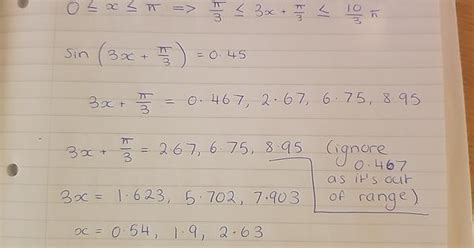 0 ≤ x ≤ π => π/3 ≤ 3x + π/3 ≤ 10/3 π
sin (3x + π/3) = 0.45
3x + π/3 = 0.467, 2.67, 6.75, 8.95
3x + π/3 = 2.67, 6.75, 8.95 (ignore 0.467 as it's out of range)
3x = 1.623, 5.702, 7.903
x = 0.54, 1.9, 2.63